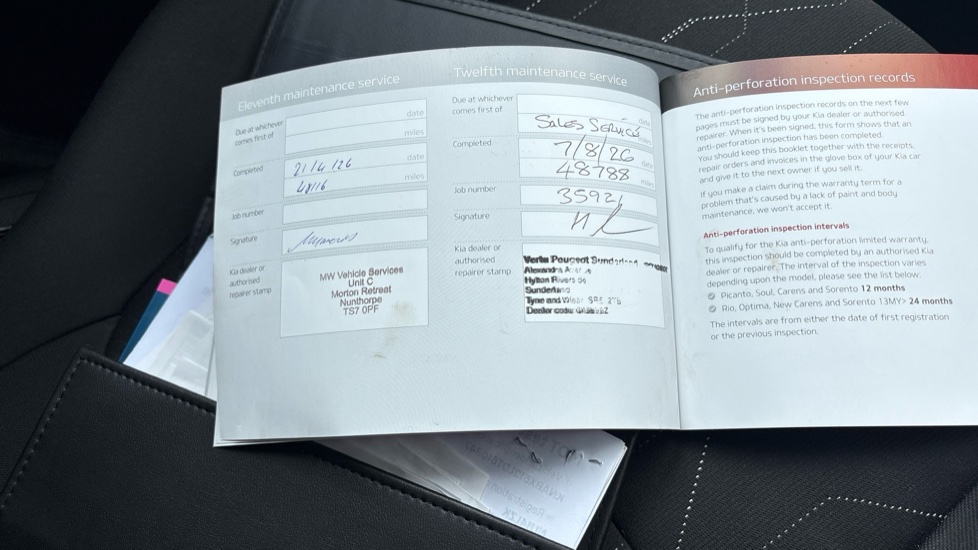 Eleventh maintenance service
Due at whichever
comes first of
date
miles
Completed
21/4/26
date
miles
Job number
Signature
Kia dealer or
authorised
repairer stamp
MW Vehicle Services
Unit C
Morton Retreat
Nunthorpe
TS7 0PF
Twelfth maintenance service
Due at whichever
comes first of
date
Sales Service
miles
Completed
7/8/26
date
48788
miles
Job number
3592
Signature
Kia dealer or
authorised
repairer stamp
Vertu Peugeot Sunderland
Hylton
Sunderland
Tyne and Wear SR5
Dealer code
Anti-perforation inspection records
The anti-perforation inspection records on the next few
pages must be signed by your Kia dealer or authorised
repairer. When it's been signed, this form shows that an
anti-perforation inspection has been completed.
You should keep this booklet together with the receipts,
repair orders and invoices in the glove box of your Kia car
and give it to the next owner if you sell it.
If you make a claim during the warranty term for a
problem that's caused by a lack of paint and body
maintenance, we won't accept it.
Anti-perforation inspection intervals
To qualify for the Kia anti-perforation limited warranty,
this inspection should be completed by an authorised Kia
dealer or repairer. The interval of the inspection varies
depending upon the model, please see the list below:
Picanto, Soul, Carens and Sorento 12 months
Rio, Optima, New Carens and Sorento 13MY> 24 months
The intervals are from either the date of first registration
or the previous inspection.